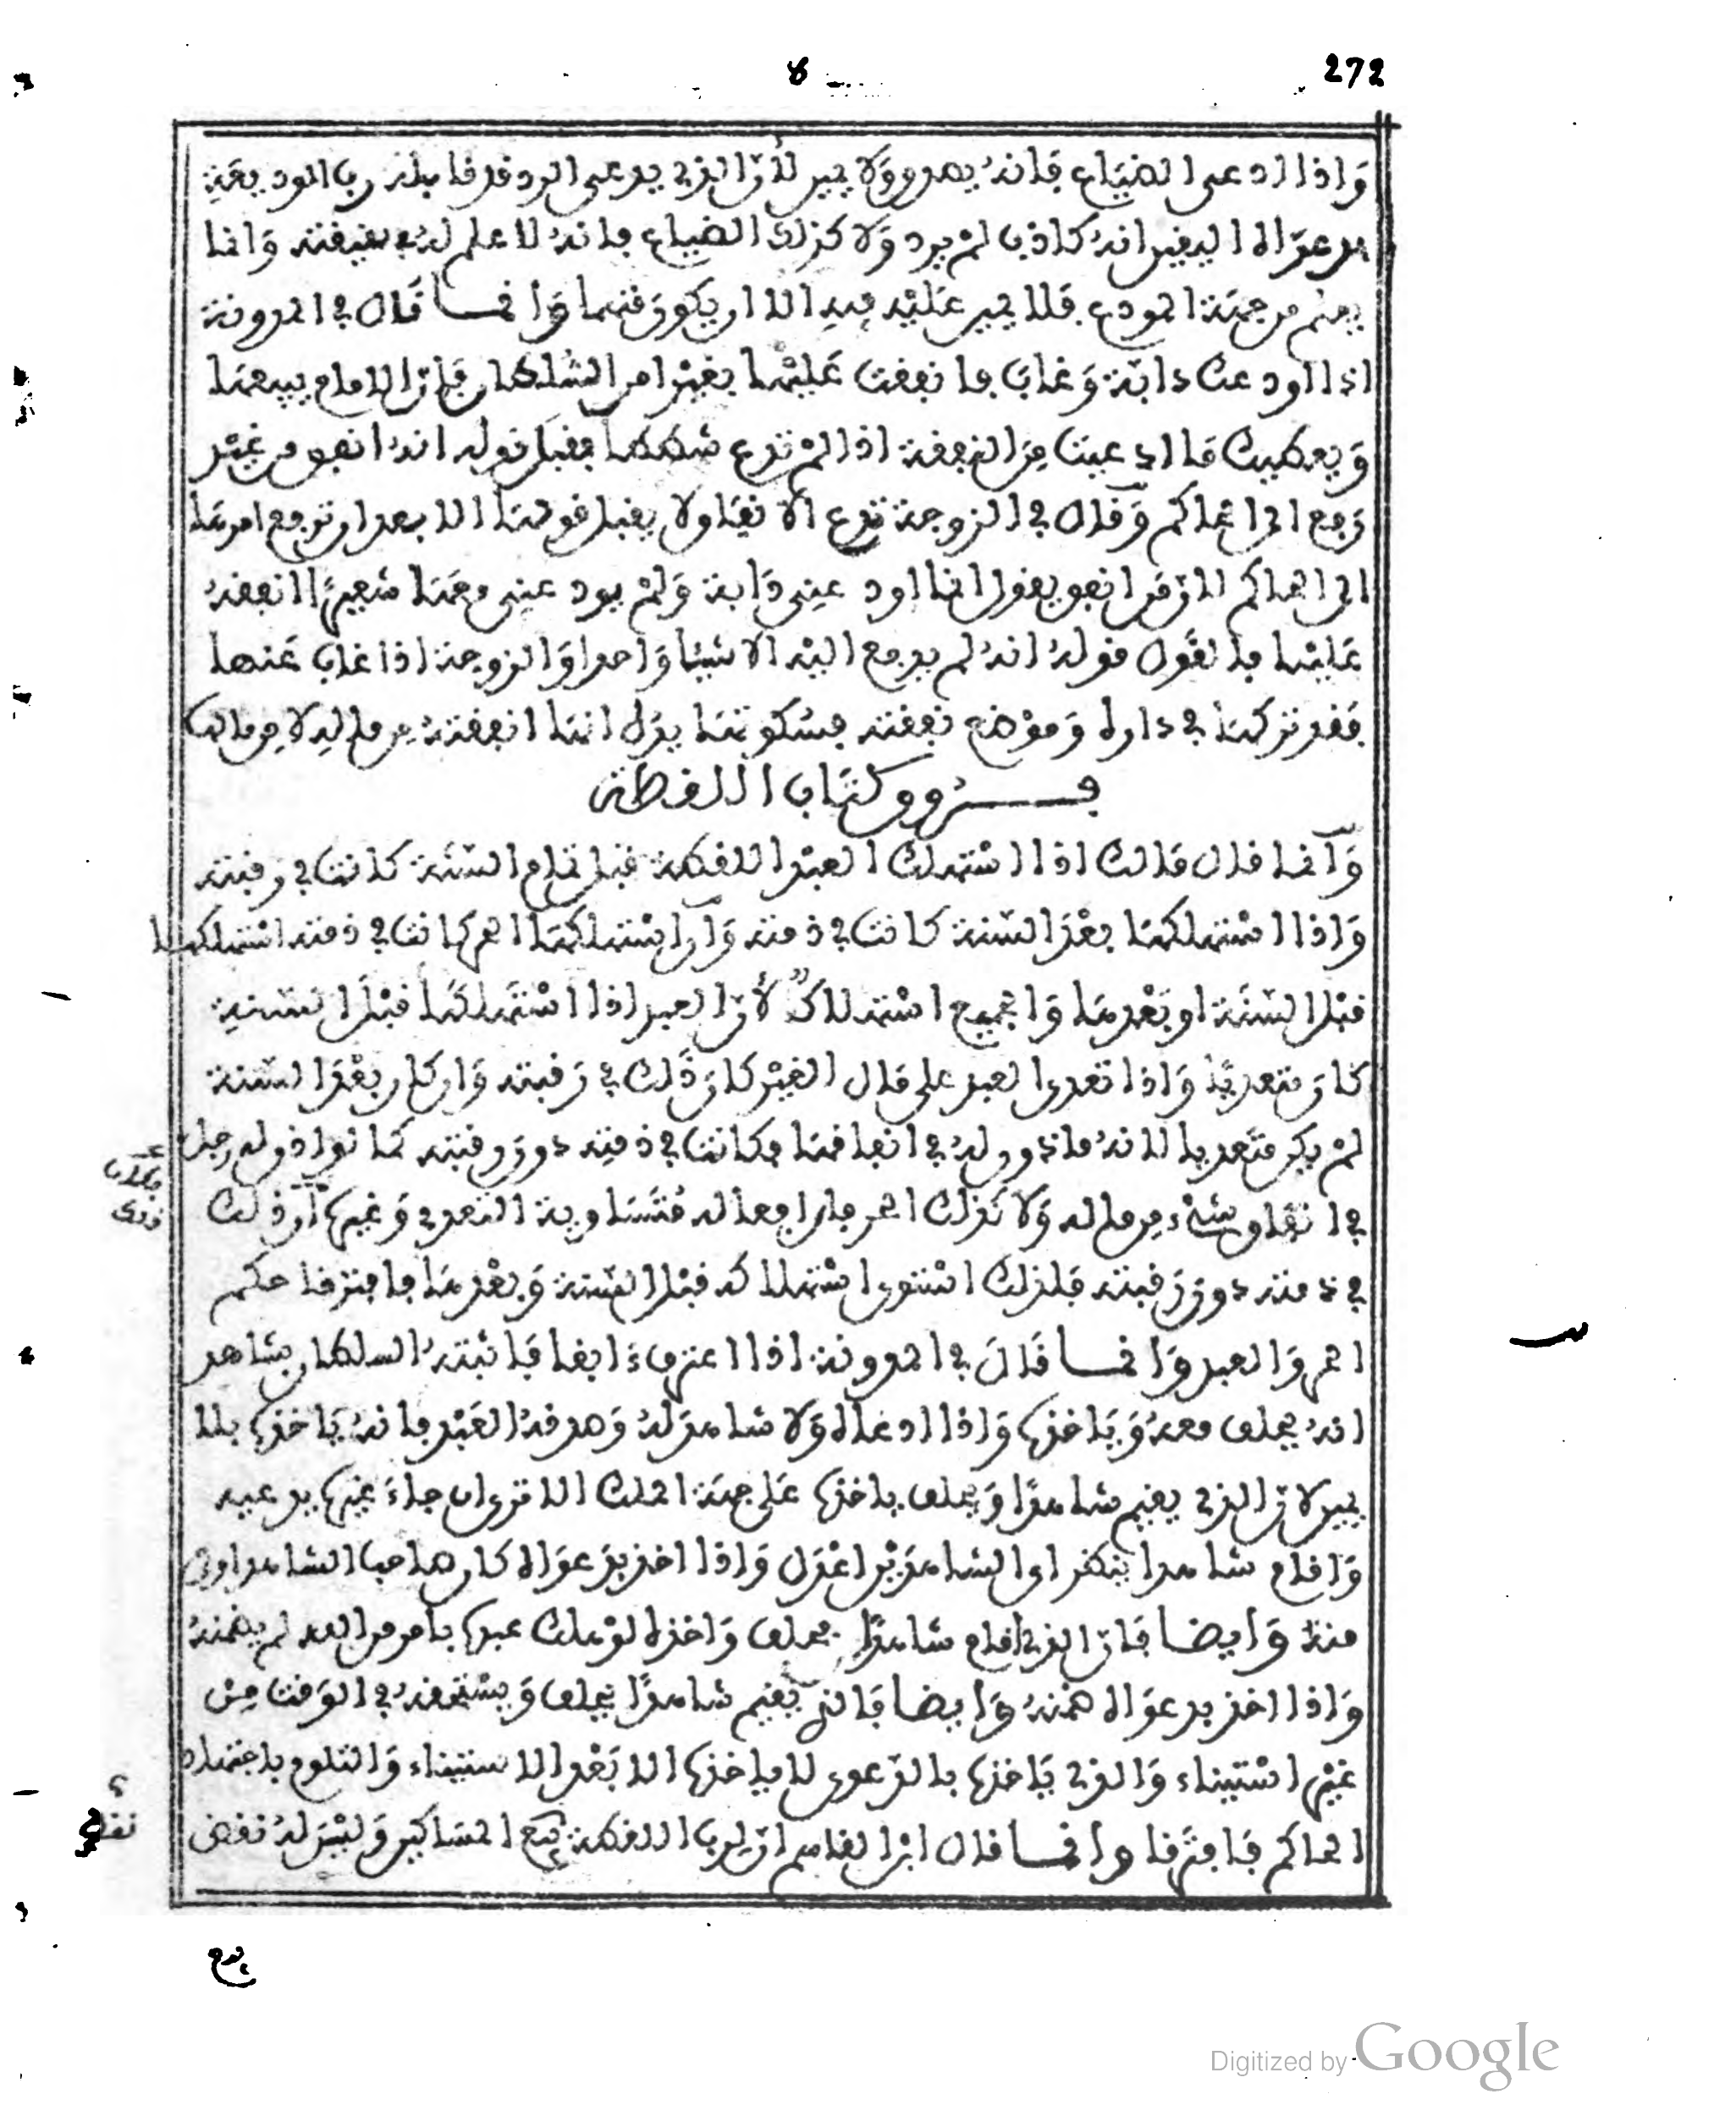 272
وَاذا ادعى الضيَاع فَانهُ يصدق وَلا يمين لأنّ الذي يدعى الرد قد قابله رب الوديعَة
بدعوَاه اليقين انهُ كاذب لم يرد وَلا كذلك الضياع فانهُ لا علم لهُ بحقيقته وَانما
يعلم من جهَة المودع فلا يمين عليْه فيه الا ان يكون متهما وَانمــا قَال في المدونة
اذا اودعت دابّة وَغاب فانفقت عَليْها بغيْر امر السُلطان فإنّ الامام يبيعهَا
وَيعطيك ما ادعيت مِن النفقة اذا لم تدع شططا فقبل قوله انهُ انفق من غيْر
رَفع الى الحاكم وَقال في الزوجة تدعى الانفاق لا يقبل قولهَا الا بعد ان ترفع امرهَا
الى الحاكم لانّ مَن انفق يقول انما اودعنى دَابة وَلم يودعنى معهَا شعيرًا انفقهُ
عَليْها فالقَول قولهُ انهُ لم يدفع اليْه الا شيئا وَاحدا وَالزوجة اذا غاب عنها
فقد تركهَا في داره وَموْضع نفقته فسُكوتهَا يدل انهَا انفقتهُ مِن ماله لا مِن مالها
فــروق كتَاب اللقطة
وَانما قال مَالك اذا اسْتهلك العبْد اللقطة قبْل تمام السّنَة كانت في رقبته
وَاذا اسْتهلكهَا بعْدَ السّنة كانت في ذمته وَان اسْتهلكهَا الحر كانت في ذمته اسْتهلكهَا
قبْل السّنَة او بَعْدهَا وَالجميع اسْتهلاك لأنّ العبد اذا اسْتهلكهَا قبْلَ السّنةِ
كانَ متعديًا وَاذا تعدى العبد على مَال الغيْر كانَ ذَلك في رَقبته وَان كان بعْدَ السّنة
لم يكن متَعديا لانهُ ماذون لهُ في انفاقهَا فكانت في ذمته دون رَقبته كما لو اذن له رجل
في انفاق شيْء مِن ماله وَلا كذلك الحر فان افعاله مُتَسَاوية التعدي وَغيرها انّ ذلك
في ذمته دون رَقبته فلذلك اسْتوى اسْتهلاكه قبْل السّنة وَبعْدهَا فافترقا حكم
الحر وَالعبد وَانمــا قَالَ في المدونة اذا اعترف ءَابقا فَاثبتهُ السلطان بشاهد
انهُ يحلف معهُ وَيَاخذه وَاذا ادعَاه وَلا شاهدَ لهُ وَصدقهُ العَبْد فانهُ يَاخذه بلا
يمين لانّ الذي يقيم شاهدًا وَيحلف ياخذه عَلى جهَة الملك الا ترى ان جاءَ غيره يدعيه
وَاقام شاهدا ينظر اي الشاهدَيْن اعْدل وَاذا اخذ بدَعوَاه كان صاحب الشاهد اولى
منهُ وَايضــا فَانّ الذي اقام شاهدًا يحلف وَاخذه لوْ هلك عبده بامر من الله لم يضمنهُ
وَاذا اخذ بدعوَاه ضمنهُ وَايضــا فَالذي يقيم شاهدًا يحلف وَيسْتحقهُ في الوَقت مِن
غيْر اسْتيناء وَالذي يَاخذه بالدّعوى لا ياخذه الا بَعْد الاستيناء وَالتلوم باجتهاد
الحاكم فَافترقا وانمــا قال ابْن القاسم انّ لرب اللقطة بيْع المسَاكين وَليْسَ لهُ نقض
Digitized by Google